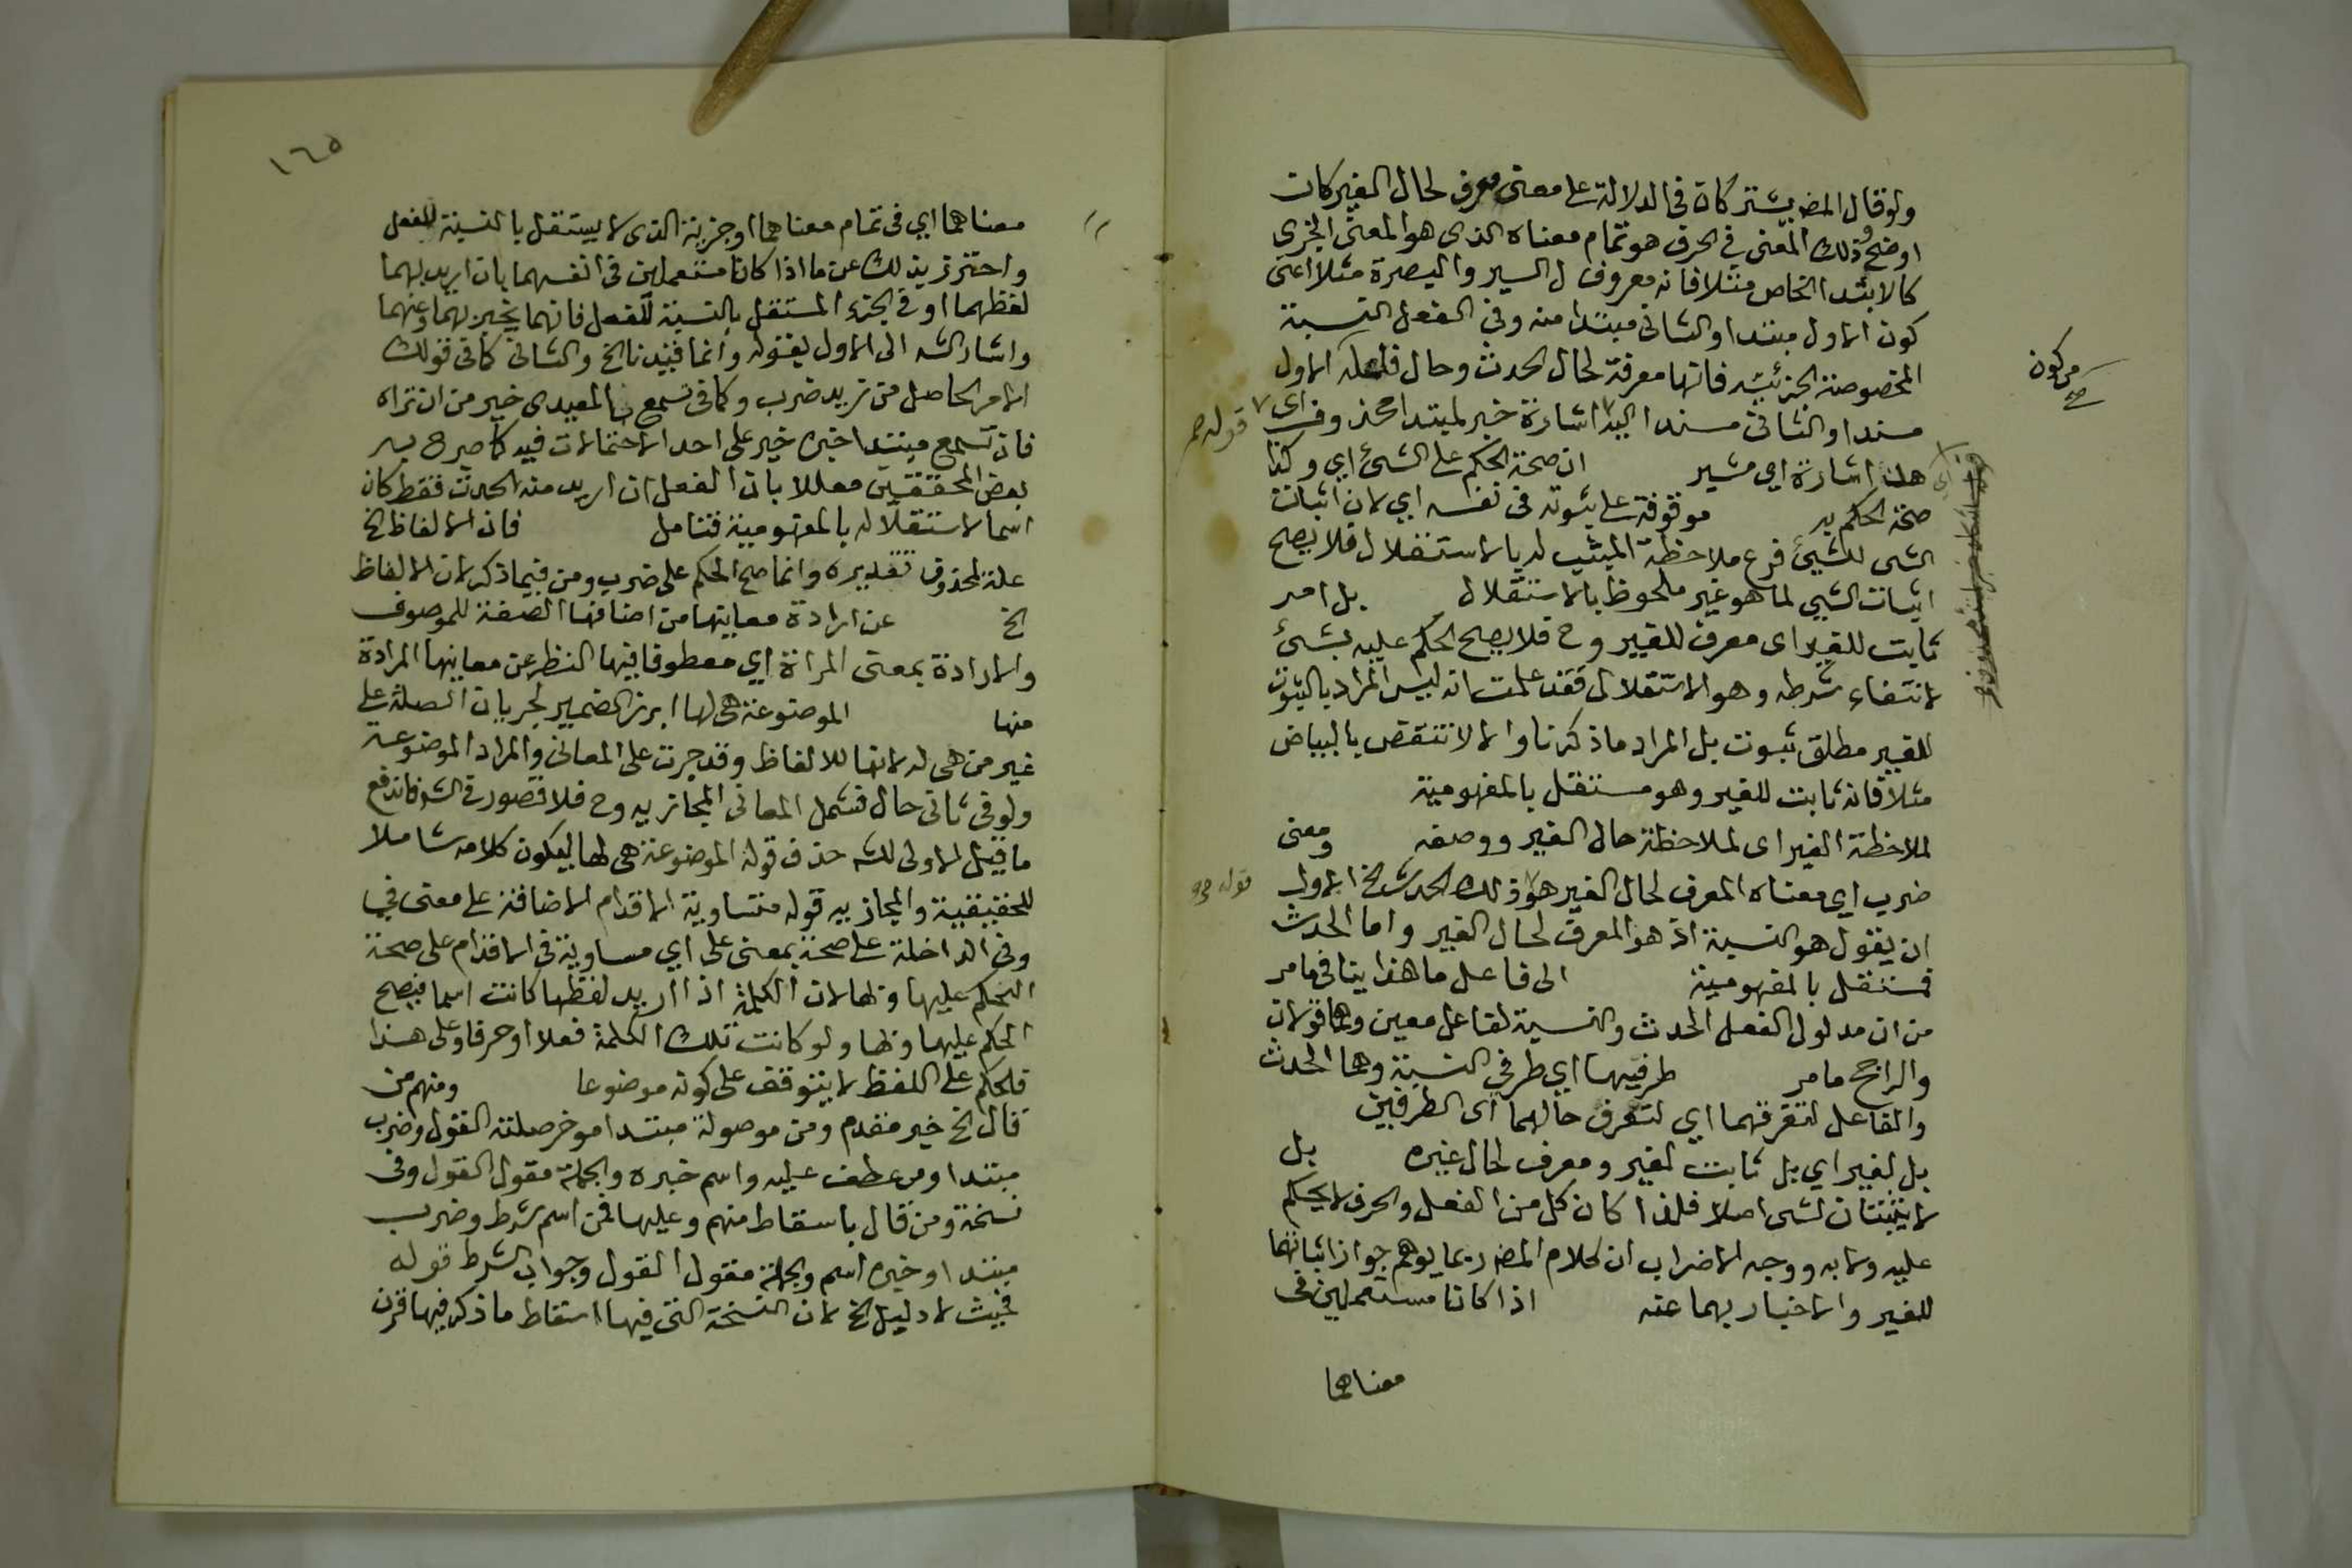 ولو قال المصـ يشتركان في الدلالة على معنى معرف لحال الغير كان
اوضح وذلك المعنى في الحرف هو تمام معناه الذى هو المعنى الجزى
كالابتدا الخاص مثلا فانه معروف ل السير والبصرة مثلا اعنى
كون الاول مبتدا والثانى مبتدا منه وفي الفعل النسبة
المخصوصة الجزئية فانها معرفة لحال الحدث وحال فاعله الاول
من كون
صح
مسندا والثانى مسندا اليه اشارة خبر لمبتدا محذوف اى
قوله
هذا اشارة اي مشير ان صحة الحكم على الشئ اي وكذا
صحة الحكم به موقوفة على ثبوته في نفسه اي لان اثبات
الشى للشيئ فرع ملاحظة المثبت له بالاستقلال فلا يصح
اثبات الشيى لما هو غير ملحوظ بالاستقلال بل امر
ثابت للغير اى معرف للغير وح فلا يصح الحكم عليه بشئ
لانتفاء شرطه وهو الاستقلال فقد علمت انه ليس المراد بالثبوت
للغير مطلق ثبوت بل المراد ما ذكرنا والا لانتقض بالبياض
مثلا فانه ثابت للغير وهو مستقل بالمفهومية
لملاحظة الغير اى لملاحظة حال الغير ووصفه ومعنى
ضرب اى معناه المعرف لحال الغير هو وذلك الحدث الخ الاولى
قوله
ان يقول هو النسبة اذ هو المعرف لحال الغير واما الحدث
فمستقل بالمفهومية الى فاعل ما هذا ينافى ما مر
من ان مدلول الفعل الحدث والنسبة لفاعل معين وهما قولان
والراجح ما مر طرفيها اي طرفي النسبة وهما الحدث
والفاعل لتعرفهما اي لتعرف حالهما اى الطرفين
بل لغير اي بل ثابت لغير ومعرف لحال غيره بل
لا يثبتان لشى اصلا فلذا كان كل من الفعل والحرف لا يحكم
عليه ولا به ووجه الاضراب ان كلام المصـ ربما يوهم جواز اثباتهما
للغير والاخبار بهما عنه اذا كانا مستعملين في
معناهما
١٦٥
معناهما اي في تمام معناهما او جزئه الذى لا يستقل بالنسبة للفعل
واحترز بذلك عن ما اذا كانا مستعملين في انفسهما بان اريد بهما
لفظهما او في الجزء المستقل بالنسبة للفعل فانهما يخبر بهما وعنهما
واشار الشه الى الاول بقوله وانما قيدنا الخ والثانى كما في قولك
الامر الحاصل من زيد ضرب وكما في تسمع بالمعيدى خير من ان تراه
فان تسمع مبتدا خبره خير على احد الاحتمالات فيه كما صرح به
بعض المحققين معللا بان الفعل ان اريد منه الحدث فقط كان
اسما لاستقلاله بالمفهومية فتامل فان الالفاظ الخ
علة لمحذوف تقديره وانما صح الحكم على ضرب ومن فيما ذكر لان الالفاظ
الخ عن ارادة معانيها من اضافة الصفة للموصوف
والارادة بمعنى المرادة اي معطوفا فيها النظر عن معانيها المرادة
منها الموضوعة هى لها ابرز الضمير لجريان الصلة على
غير من هى له لانها للالفاظ وقد جرت على المعانى والمراد الموضوعة
ولو في ثانى حال فتشمل المعانى المجازيه وح فلا قصور في الشه فاندفع
ما قيل الاولى للشه حذف قوله الموضوعة هى لها ليكون كلامه شاملا
للحقيقية والمجازيه قوله متساوية الاقدام الاضافة على معنى في
وفي الداخلة على صحة بمعنى على اي مساوية في الاقدام على صحة
الحكم عليها وبها لان الكلمة اذا اريد لفظها كانت اسما فيصح
الحكم عليها وبها ولو كانت تلك الكلمة فعلا او حرفا وعلى هذا
فالحكم على اللفظ لا يتوقف على كونه موضوعا ومنهم من
قال الخ خبر مقدم ومن موصولة مبتدا موخر صلته القول وضرب
مبتدا ومن عطف عليه واسم خبره والجملة مقول القول وفى
نسخة ومن قال باسقاط منهم وعليها فمن اسم شرط وضرب
مبتدا وخبره اسم والجملة مقول القول وجواب الشرط قوله
فحيث لا دليل الخ لان النسخة التى فيها اسقاط ما ذكر فيها قرن